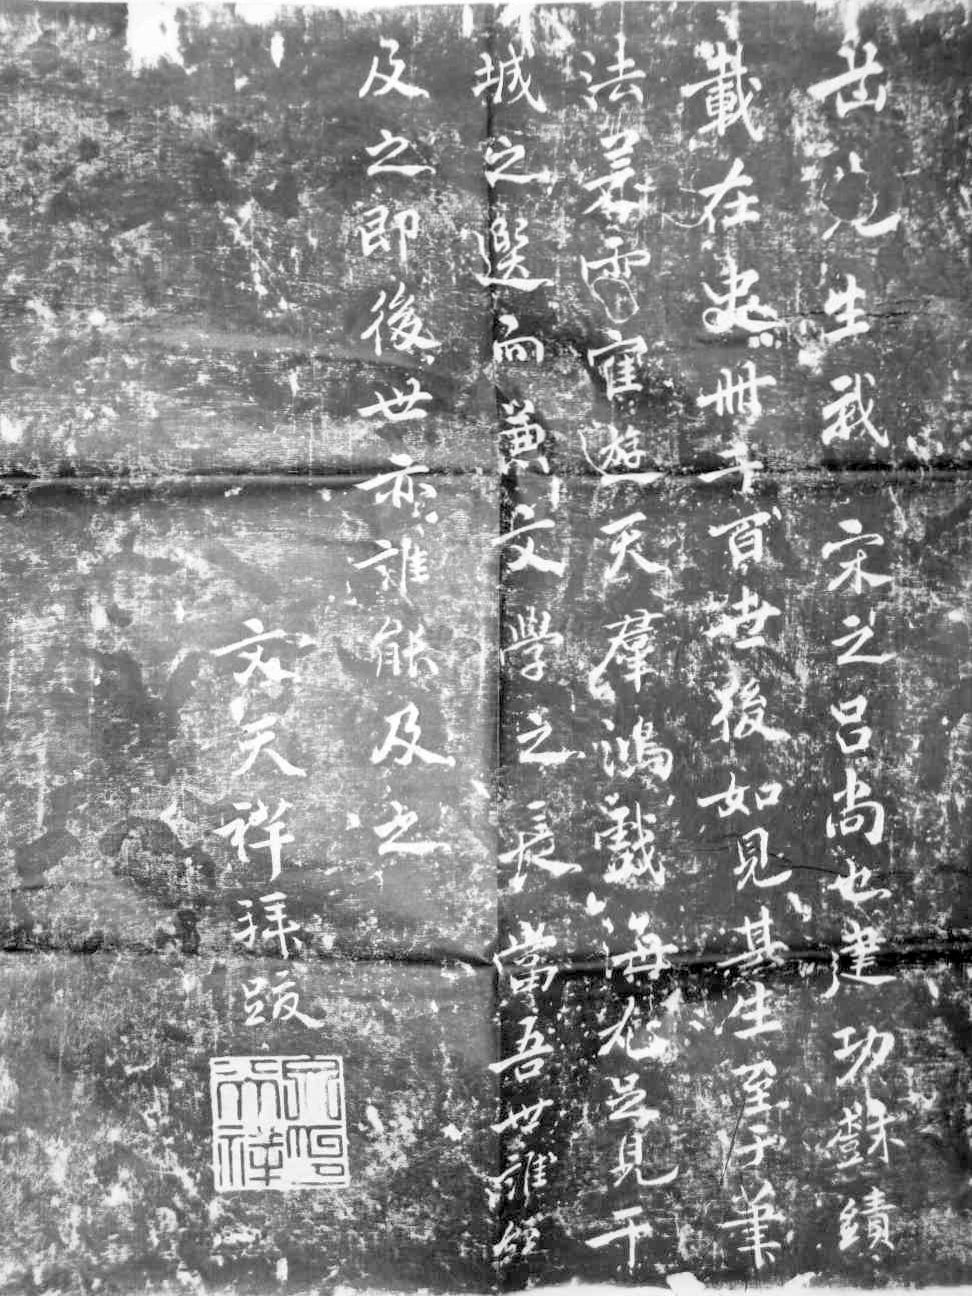 岳先生我 宋之呂尚也建功䚻績
載在史冊千百世後如見其生至于筆
法若雲鶴遊天羣鴻戲海尤足見干
城之選而兼文學之長當吾世誰能
及之即後世亦誰能及之
文天祥拜跋
文天祥印